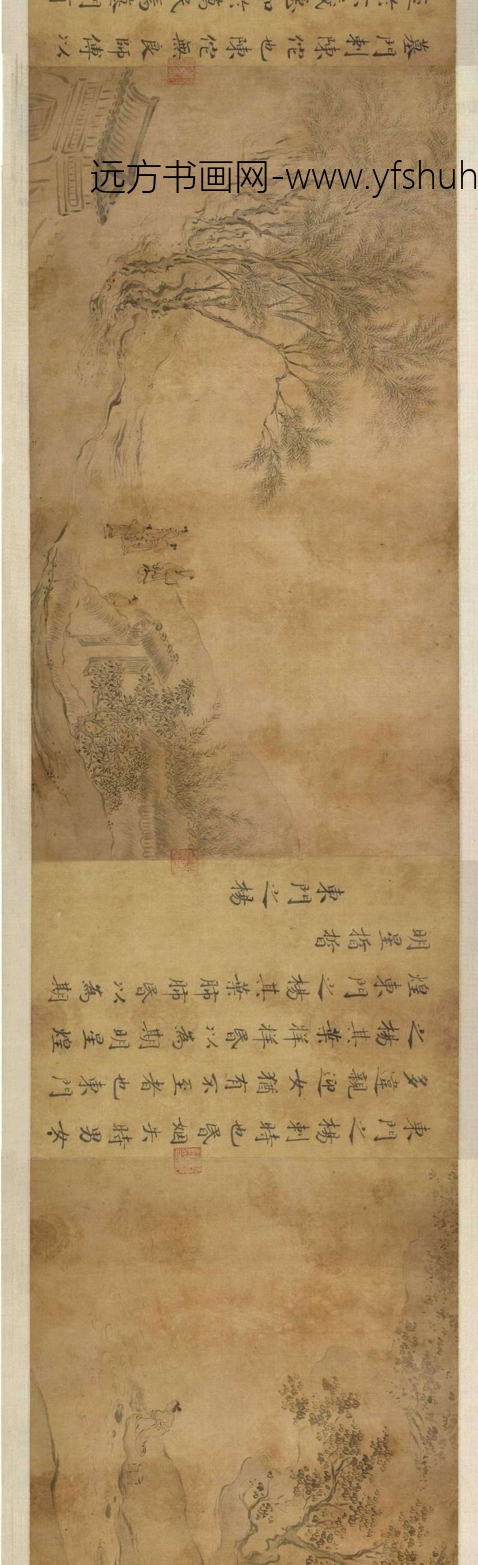 東門之楊刺時也昏姻失時男女
多違親迎女猶有不至者也東門
之楊其葉牂牂昏以為期明星煌
煌東門之楊其葉肺肺昏以為期
明星晢晢
東門之楊
远方书画网-www.yfshuh
墓門刺陳佗也陳佗無良師傅以